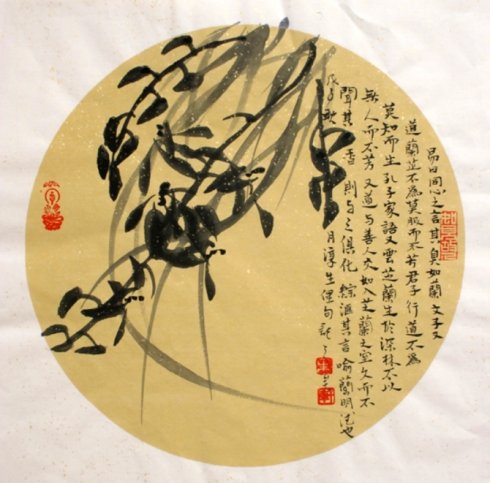 易曰同心之言其臭如蘭 文子又
道蘭芷不為莫服而不芳君子行道不為
莫知而止 孔子家語又雲芝蘭生於深林不以
無人而不芳 又道与善人交如入芝蘭之室久而不
聞其香則与之俱化 綜滙其言喻蘭明也
戊子 月淳生